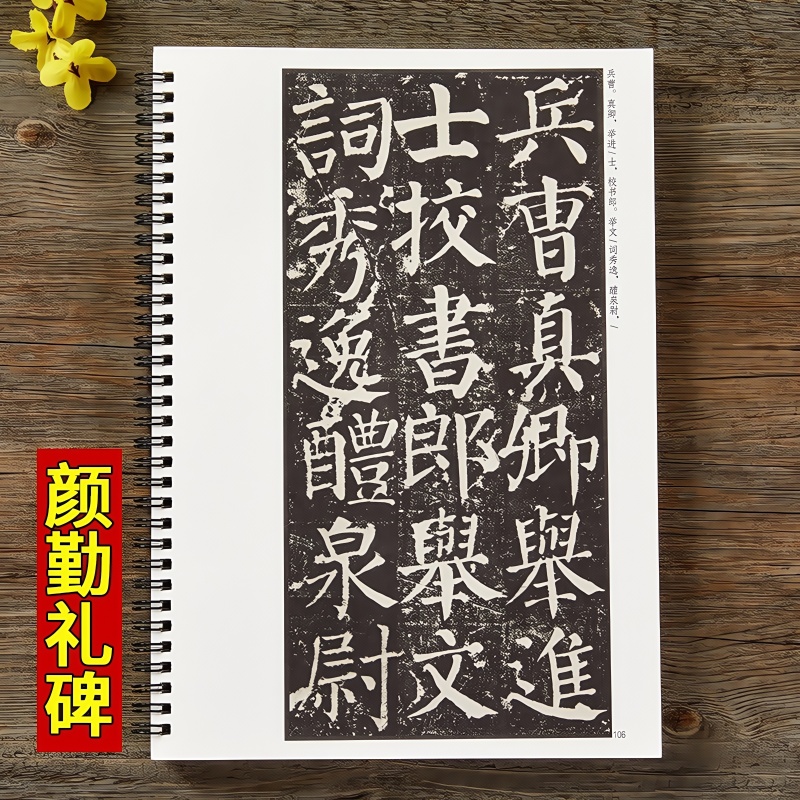 兵曹真卿舉進
士挍書郎舉文
詞秀逸醴泉尉
兵曹。真卿，举进/士，校书郎。举文/词秀逸，醴泉尉，/
106
颜勤礼碑